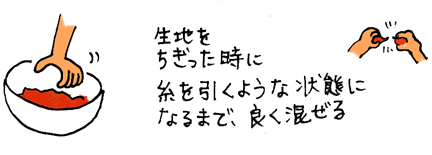 生地を
ちぎった時に
糸を引くような状態に
なるまで、良く混ぜる